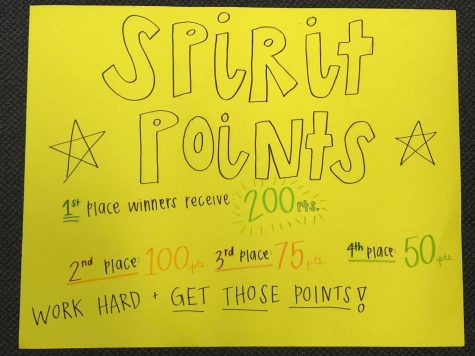 SPiRit
POiNtS
1st PLACE WINNERS RECEIVE 200 pts.
2nd PLACE: 100 pts. 3rd PLACE: 75 pts. 4th PLACE: 50 pts.
WORK HARD + GET THOSE POINTS!